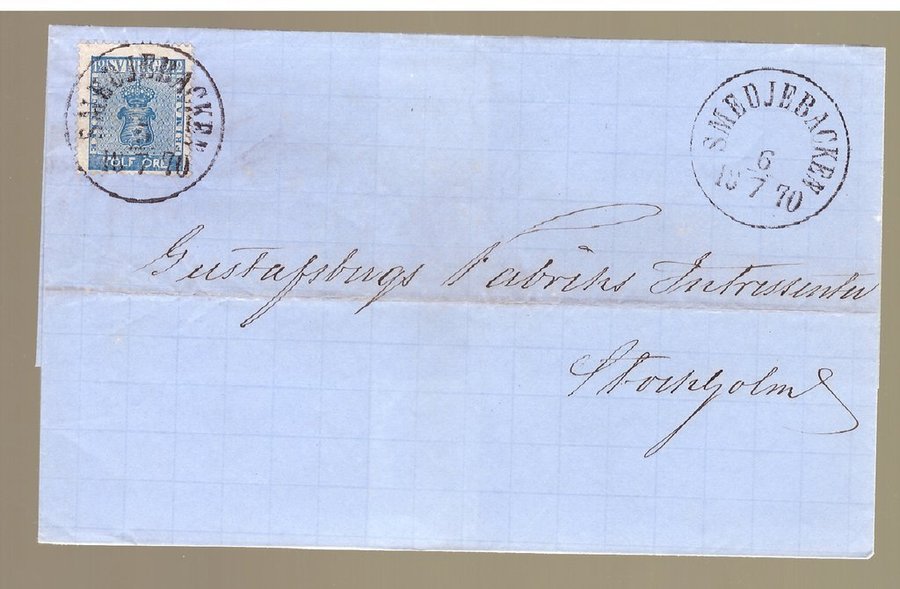 12 SVERIGE 12
SMEDJEBACKEN
TOLF ÖRE
18 7 70
SMEDJEBACKEN
6
18 7 70
Gustafsbergs Fabriks Intressenter
Stockholm